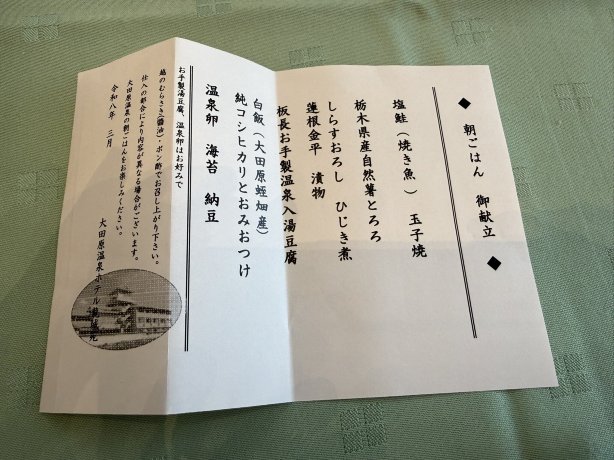 ◆ 朝ごはん 御献立 ◆
塩鮭(焼き魚) 玉子焼
栃木県産自然薯とろろ
しらすおろし ひじき煮
蓮根金平 漬物
板長お手製温泉入湯豆腐
白飯(大田原蛭畑産)
純コシヒカリとおみおつけ
温泉卵 海苔 納豆
お手製湯豆腐、温泉卵はお好みで
越のむらさき(醤油)・ポン酢でお召し上がり下さい。
仕入の都合により内容が異なる場合がございます。
大田原温泉の朝ごはんをお楽しみください。
令和八年 三月
大田原温泉ホテル